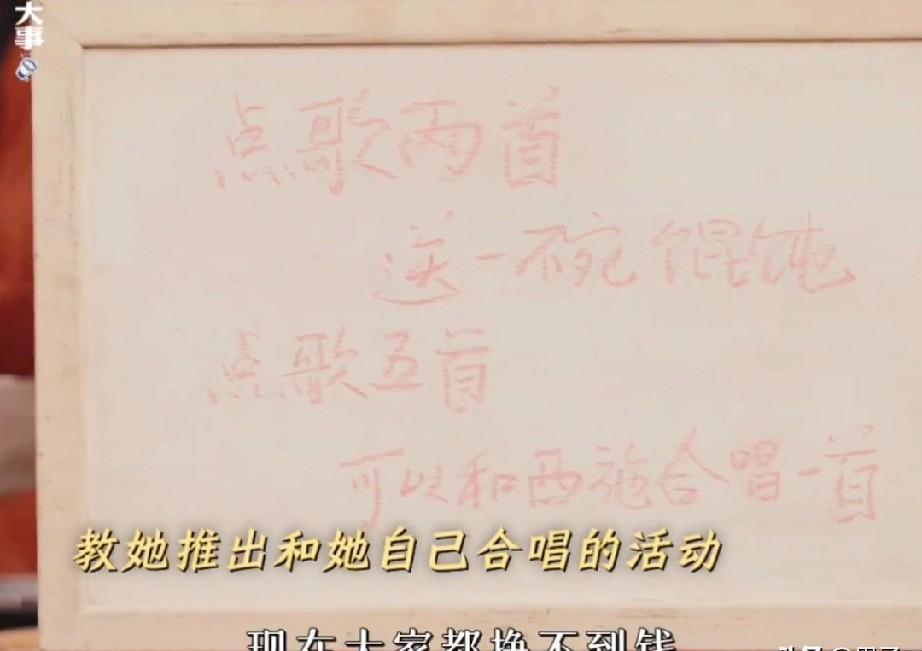 大事
点歌两首
送一碗馄饨
点歌五首
可以和西施合唱一首
教她推出和她自己合唱的活动
现在大家都挣不到钱